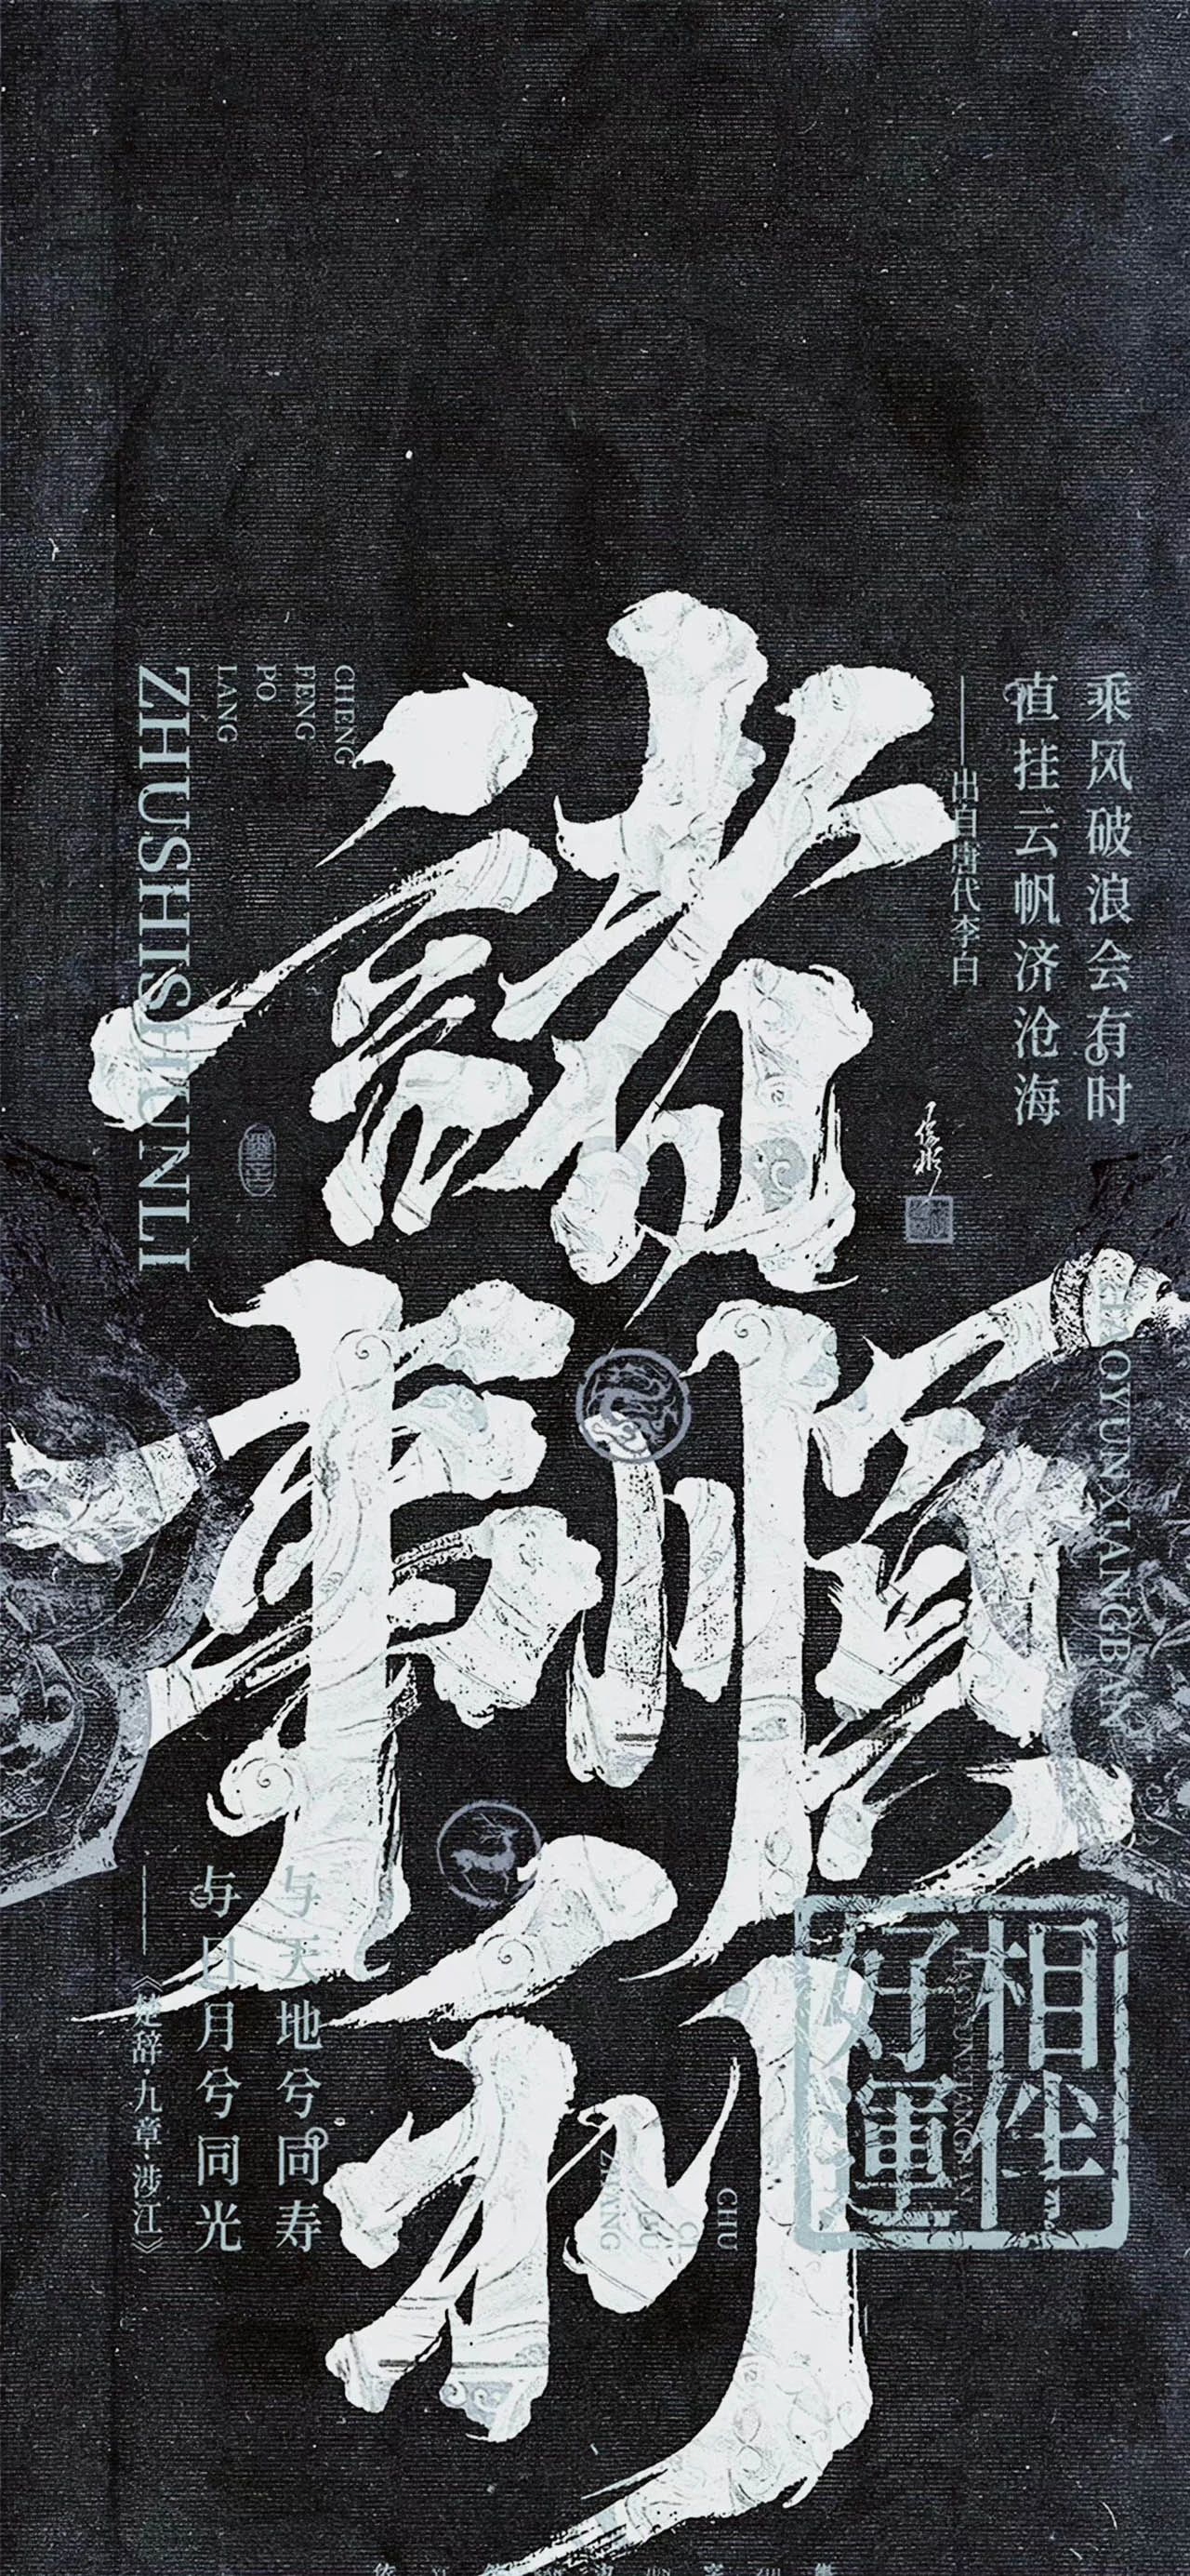 諸
事順
利
乘风破浪会有时
直挂云帆济沧海
——出自唐代李白
CHENG
FENG
PO
LANG
ZHUSHISHUNLI
HAOYUNXIANGBAN
与天地兮同寿
与日月兮同光
——《楚辞·九章·涉江》
相伴
好運
HAOYUNXIANGBAN
CHU
CI